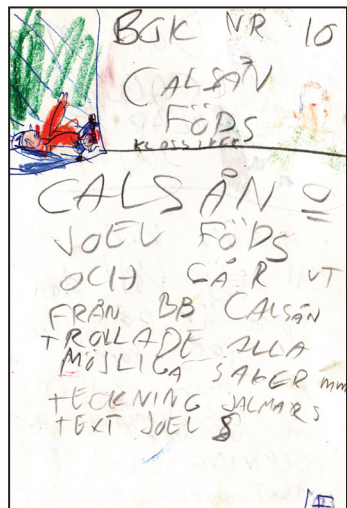 BGK NR 10
CALSÅN
FÖDS
KLASSIKER
CALSÅN =
JOEL FÖDS
OCH GÅR UT
FRÅN BB CALSÅN
TROLLADE ALLA
MÖJLIGA SAKER mm
TECKNING JALMARS
TEXT JOEL